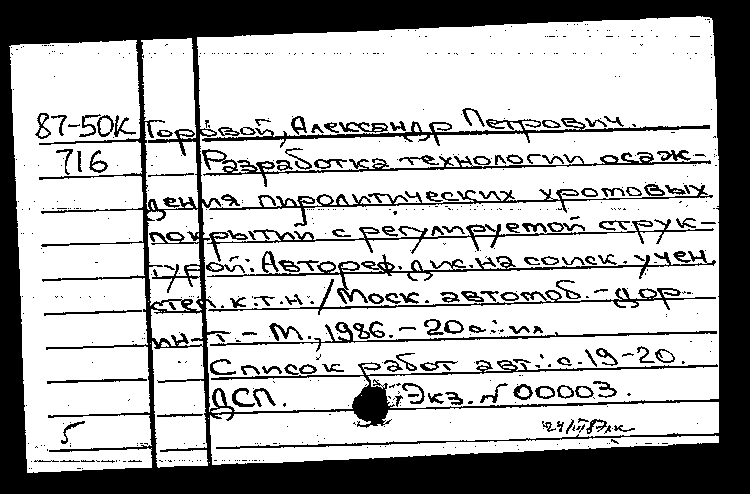 87-50К Горовой, Александр Петрович.
716 Разработка технологии осаж-
дения пиролитических хромовых
покрытий с регулируемой струк-
турой: Автореф. дис. на соиск. учен.
степ. к.т.н. / Моск. автомоб.-дор.
ин-т. - М., 1986. - 20 с.: ил.
Список работ авт.: с. 19-20.
ДСП. Экз. № 00003.
5